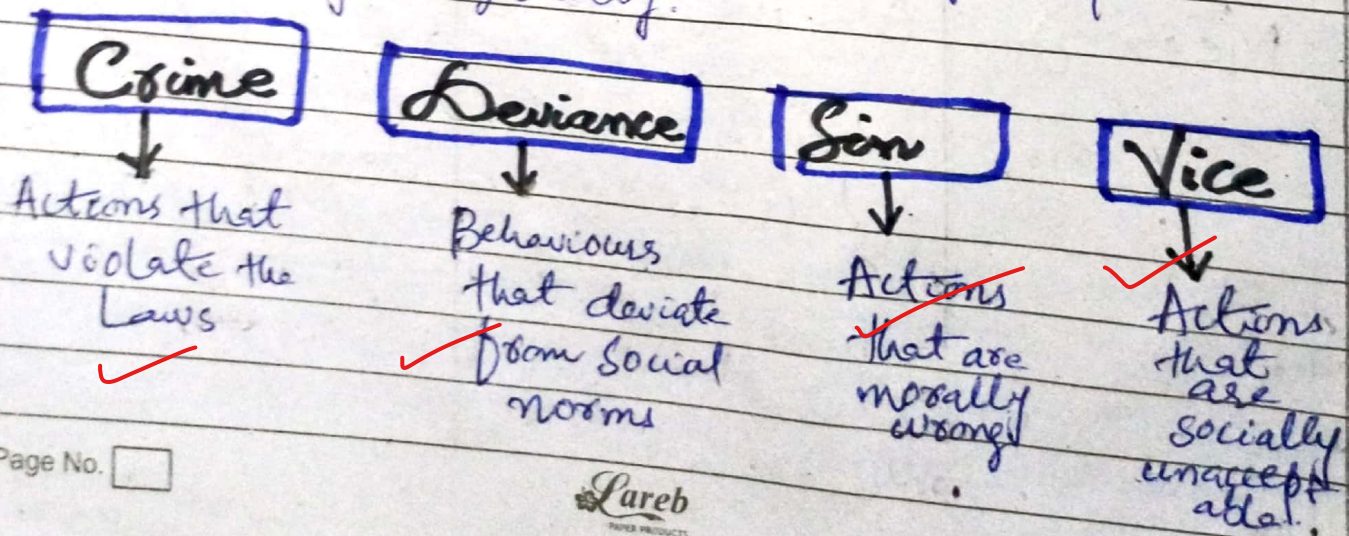 Crime
Actions that
violate the
Laws
Deviance
Behaviours
that deviate
from social
norms
Sin
Actions
that are
morally
wrong
Vice
Actions
that
are
socially
unaccept
able.
Page No.
Lareb
PAPER PRODUCTS